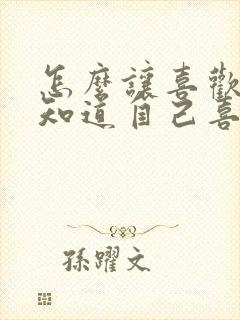 怎麼讓喜歡
知道自己喜
孫躍文